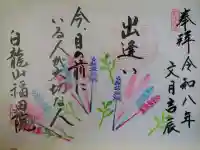 奉拝 令和八年
文月吉辰
出逢い
今、目の前に
いる人が大切な人
白龍山福田院